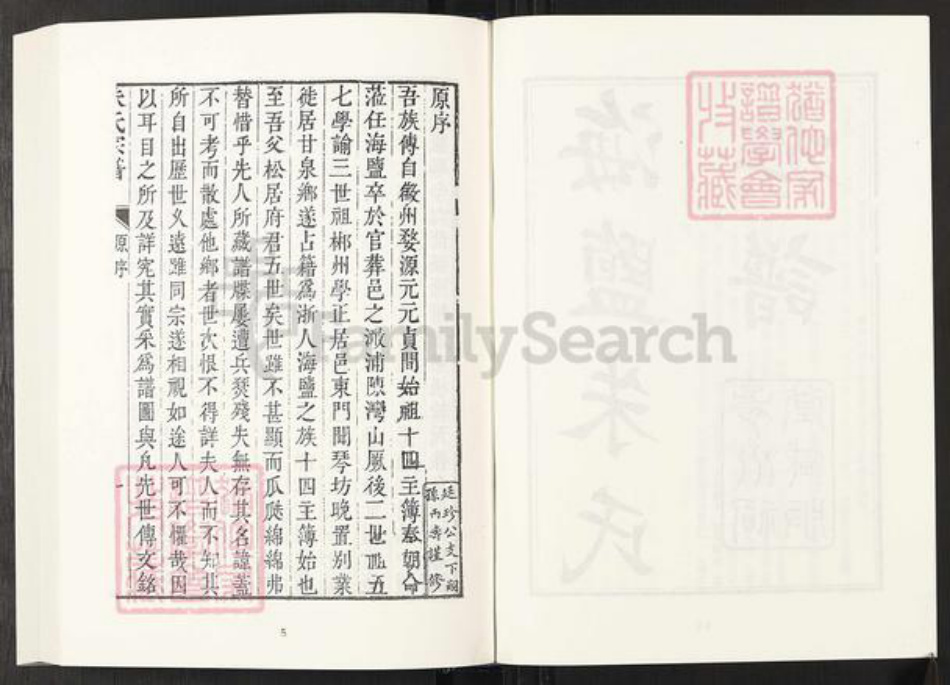 原序
吾族傳自徽州婺源元元貞間始祖十四主簿奉朝命
蒞任海鹽卒於官葬邑之澉浦陳灣山厥後二世祉五
七學諭三世祖郴州學正居邑東門聞琴坊晚置別業
徙居甘泉鄉遂占籍爲浙人海鹽之族十四主簿始也
至吾父松居府君五世矣世雖不甚顯而瓜瓞綿綿弗
替惜乎先人所藏譜牒屢遭兵燹殘失無存其名諱蓋
不可考而散處他鄉者世次恨不得詳夫人而不知其
所自出歷世久遠雖同宗遂相視如途人可不懼哉因
以耳目之所及詳究其實采爲譜圖與凡先世傳文銘
朱氏宗譜
原序
一
延珍公支下嗣
孫丙壽謹修
5
猶他家
譜學會
收藏
海鹽朱氏
譜
FamilySearch